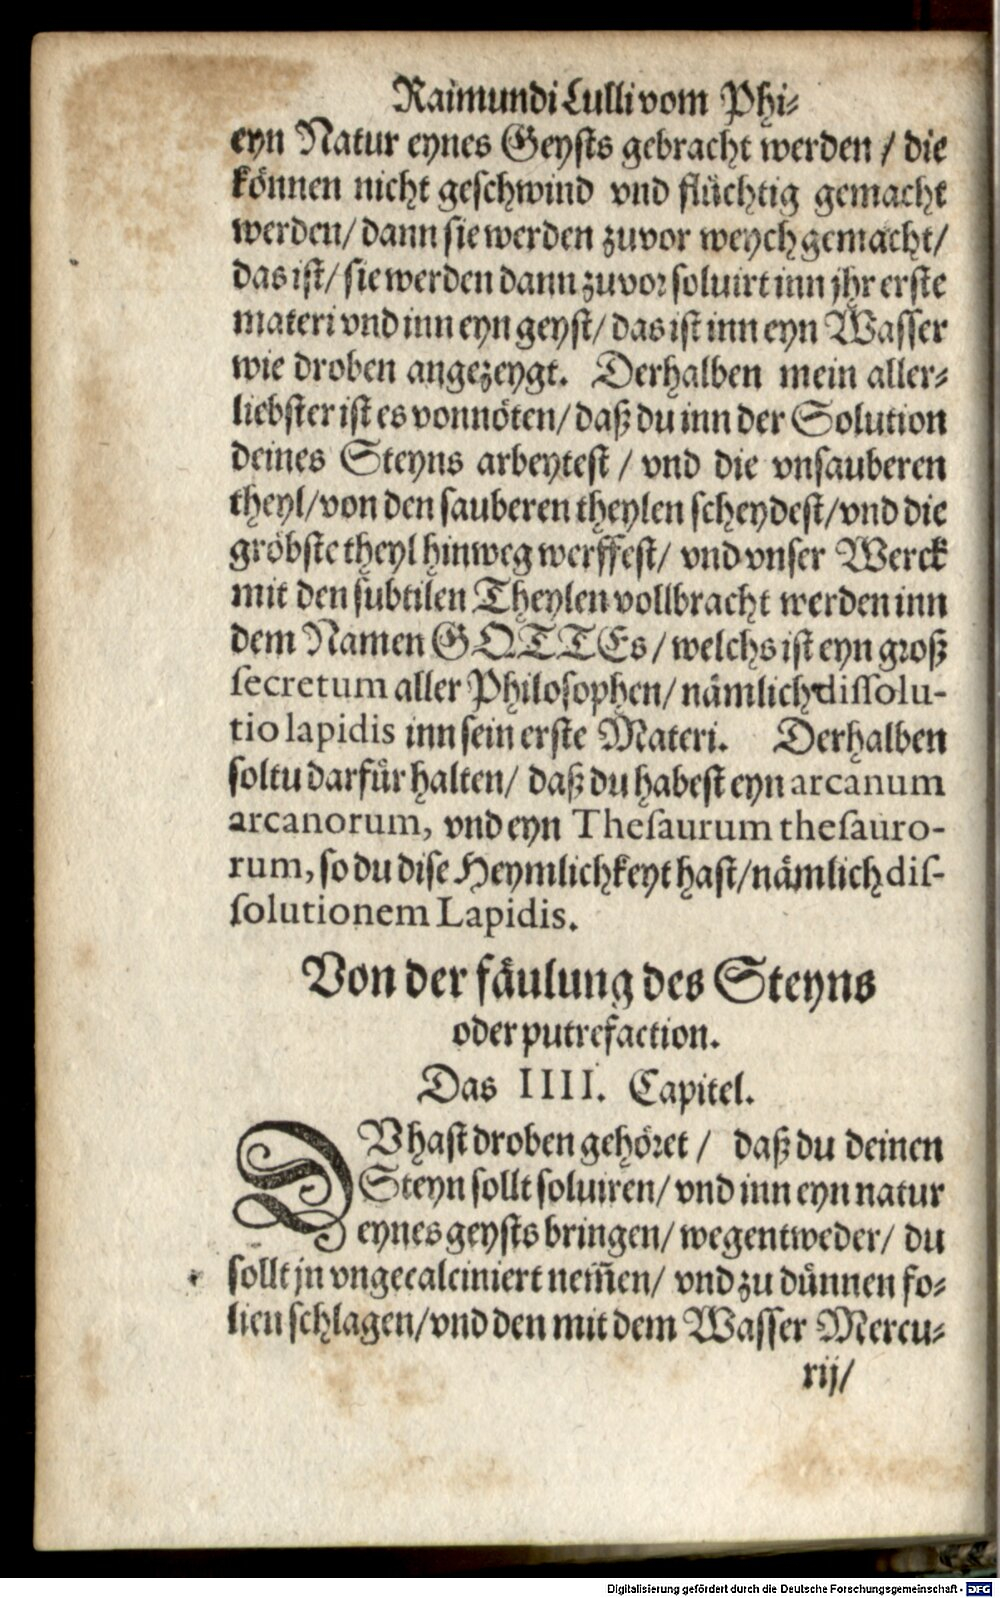 Raimundi Lulli vom Phi⸗
eyn Natur eynes Geysts gebracht werden / die
können nicht geschwind vnd flüchtig gemacht
werden/ dann sie werden zuvor weych gemacht/
das ist/ sie werden dann zuvor soluirt inn jhr erste
materi vnd inn eyn geyst/ das ist inn eyn Wasser
wie droben angezeygt. Derhalben mein aller⸗
liebster ist es vonnöten/ daß du inn der Solution
deines Steyns arbeytest / vnd die vnsauberen
theyl/ von den sauberen theylen scheydest/ vnd die
gröbste theyl hinweg werffest/ vnd vnser Werck
mit den subtilen Theylen vollbracht werden inn
dem Namen GOTTEs/ welchs ist eyn groß
secretum aller Philosophen/ nämlich dissolu-
tio lapidis inn sein erste Materi. Derhalben
soltu darfür halten/ daß du habest eyn arcanum
arcanorum, vnd eyn Thesaurum thesauro-
rum, so du dise Heymlichkeyt hast/ nämlich dis-
solutionem Lapidis.
Von der fäulung des Steyns
oder putrefaction.
Das IIII. Capitel.
DV hast droben gehöret / daß du deinen
Steyn sollt soluiren/ vnd inn eyn natur
eynes geysts bringen/ wegentweder/ du
sollt jn vngecalciniert nem̃en/ vnd zu dünnen fo⸗
lien schlagen/ vnd den mit dem Wasser Mercu⸗
rij/
Digitalisierung gefördert durch die Deutsche Forschungsgemeinschaft - DFG